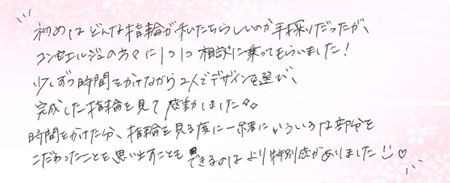 初めはどんな指輪が私たちらしいのか手探りだったが、
コンシェルジュの方々に1つ1つ相談に乗ってもらいました!
少しずつ時間をかけながら2人でデザインを選び、
完成した指輪を見て感動しました♡♡
時間をかけた分、指輪を見る度に一緒にいろいろな部分を
こだわったことを思い出すことも できるのは より特別感がありました☺♡